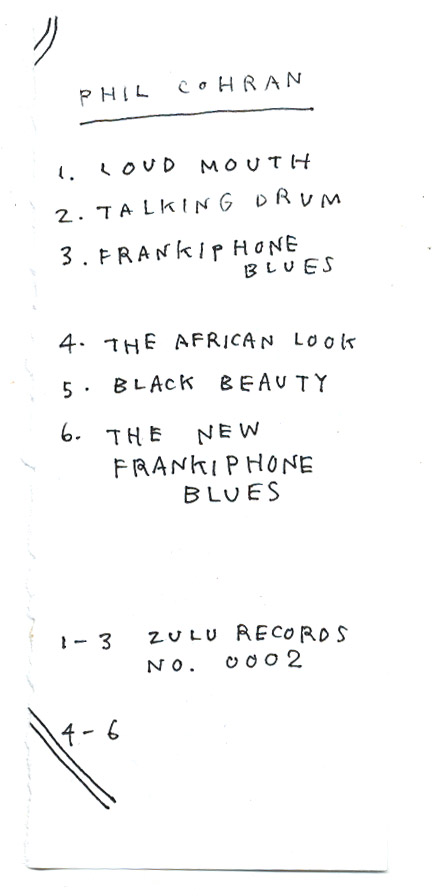 PHIL COHRAN
1. LOUD MOUTH
2. TALKING DRUM
3. FRANKIPHONE
BLUES
4. THE AFRICAN LOOK
5. BLACK BEAUTY
6. THE NEW
FRANKIPHONE
BLUES
1-3 ZULU RECORDS
NO. 0002
4-6